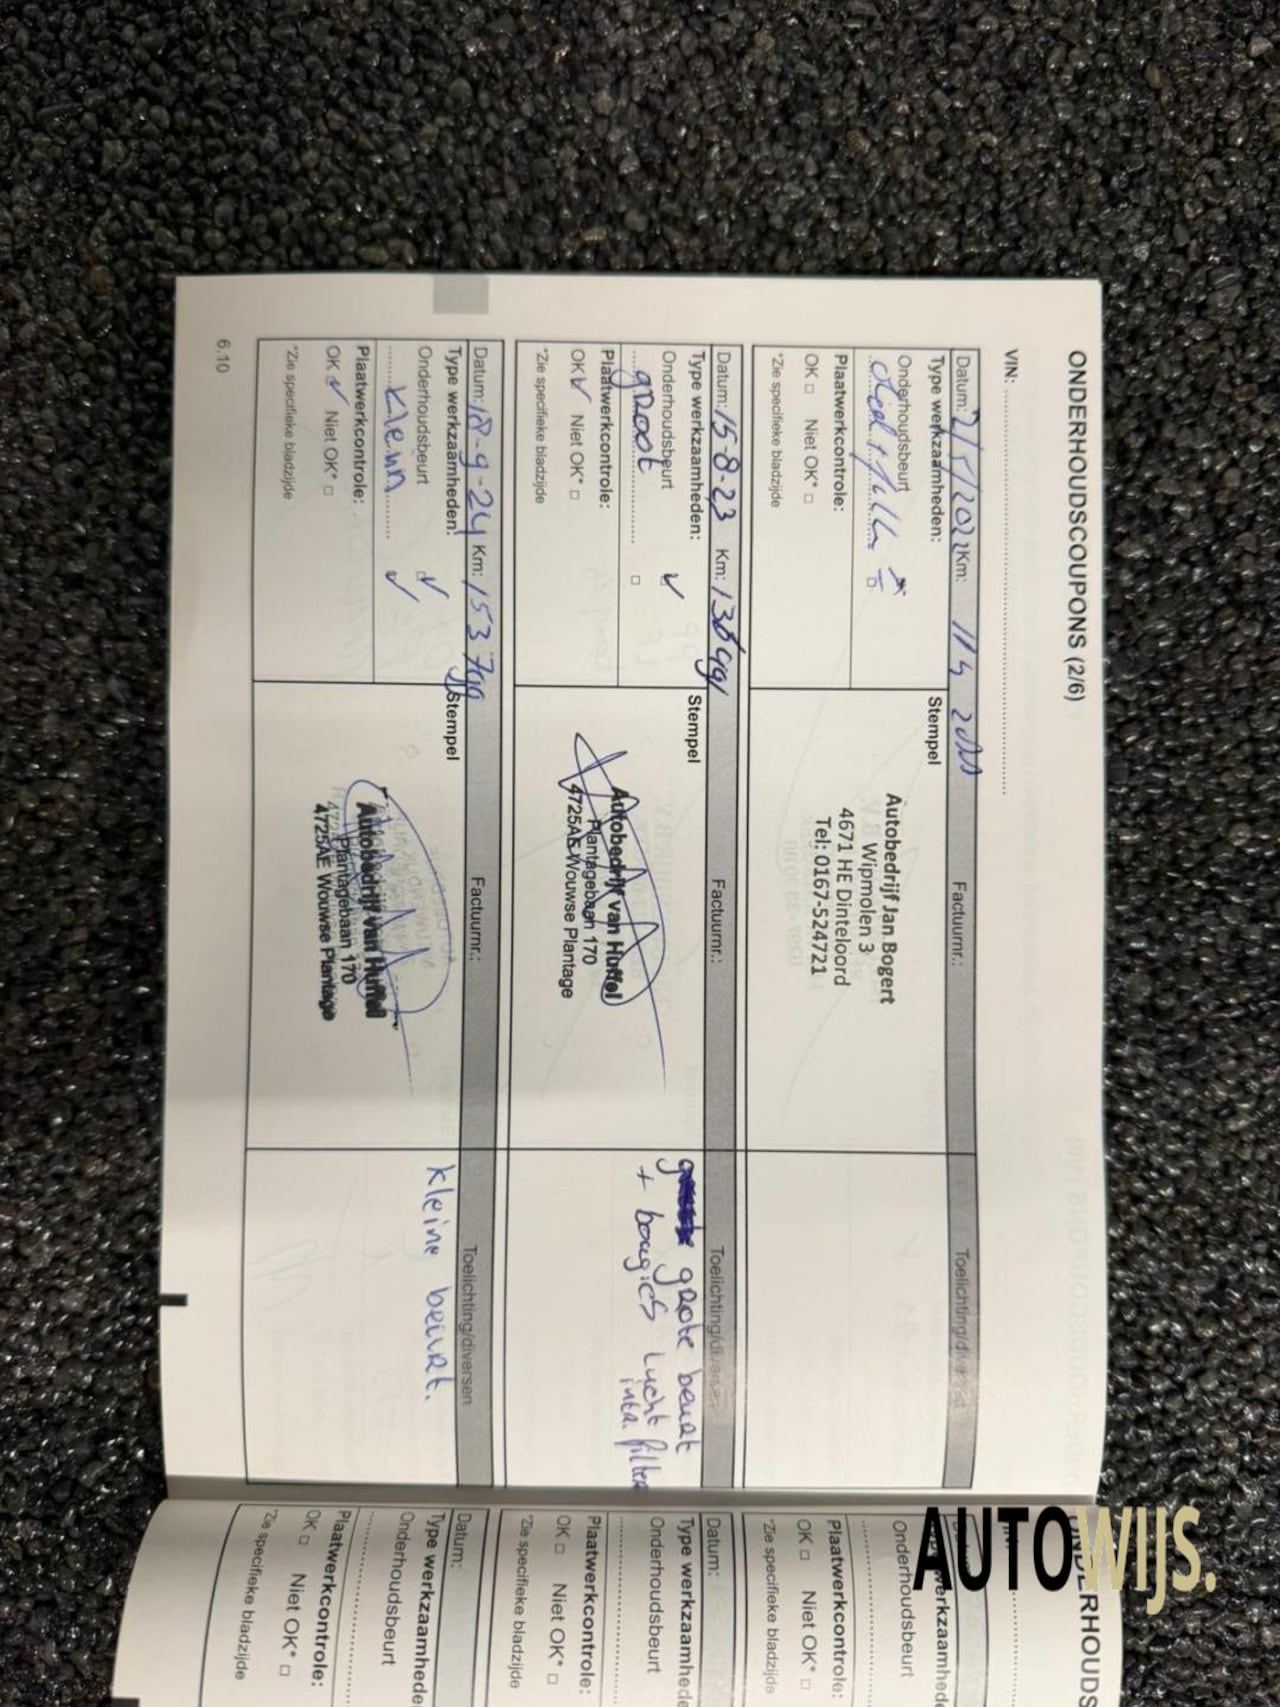 ONDERHOUDSCOUPONS (2/6)
VIN:
Datum: 2/5/2022 Km: 114 200
Factuurnr.:
Toelichting/diversen
Type werkzaamheden:
Onderhoudsbeurt
Plaatwerkcontrole:
OK □ Niet OK* □
*Zie specifieke bladzijde
Stempel
Autobedrijf Jan Bogert
Wipmolen 3
4671 HE Dinteloord
Tel: 0167-524721
Datum: 15-8-23 Km:
Factuurnr.:
Toelichting/diversen
Type werkzaamheden:
Onderhoudsbeurt ✓
groot □
Plaatwerkcontrole:
OK ✓ Niet OK* □
*Zie specifieke bladzijde
Stempel
Autobedrijf van Huffel
Plantagebaan 170
4725AE Wouwse Plantage
grote beurt
+ bougies lucht filter
inta.
Datum: 18-9-24 Km: 153
Factuurnr.:
Toelichting/diversen
Type werkzaamheden:
Onderhoudsbeurt ✓
klein ✓
Plaatwerkcontrole:
OK ✓ Niet OK* □
*Zie specifieke bladzijde
Stempel
Autobedrijf van Huffel
Plantagebaan 170
4725AE Wouwse Plantage
kleine beurt.
6.10
ONDERHOUDS
Onderhoudsbeurt
Plaatwerkcontrole:
OK □ Niet OK* □
*Zie specifieke bladzijde
Datum:
Type werkzaamhede
Onderhoudsbeurt
Plaatwerkcontrole:
OK □ Niet OK* □
*Zie specifieke bladzijde
Datum:
Type werkzaamhede
Onderhoudsbeurt
Plaatwerkcontrole:
OK □ Niet OK* □
*Zie specifieke bladzijde
AUTOWIJS.